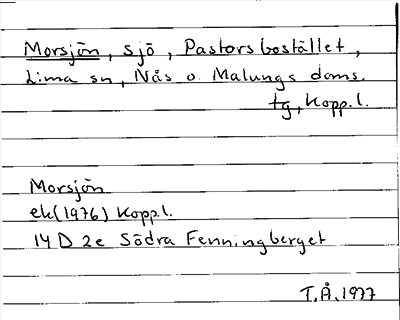 Morsjön, sjö, Pastorsbostället,
Lima sn, Nås o. Malungs doms.
tg, Kopp. l.
Morsjön
ek(1976) Kopp. l.
14 D 2e Södra Fenningberget
T.Å. 1977